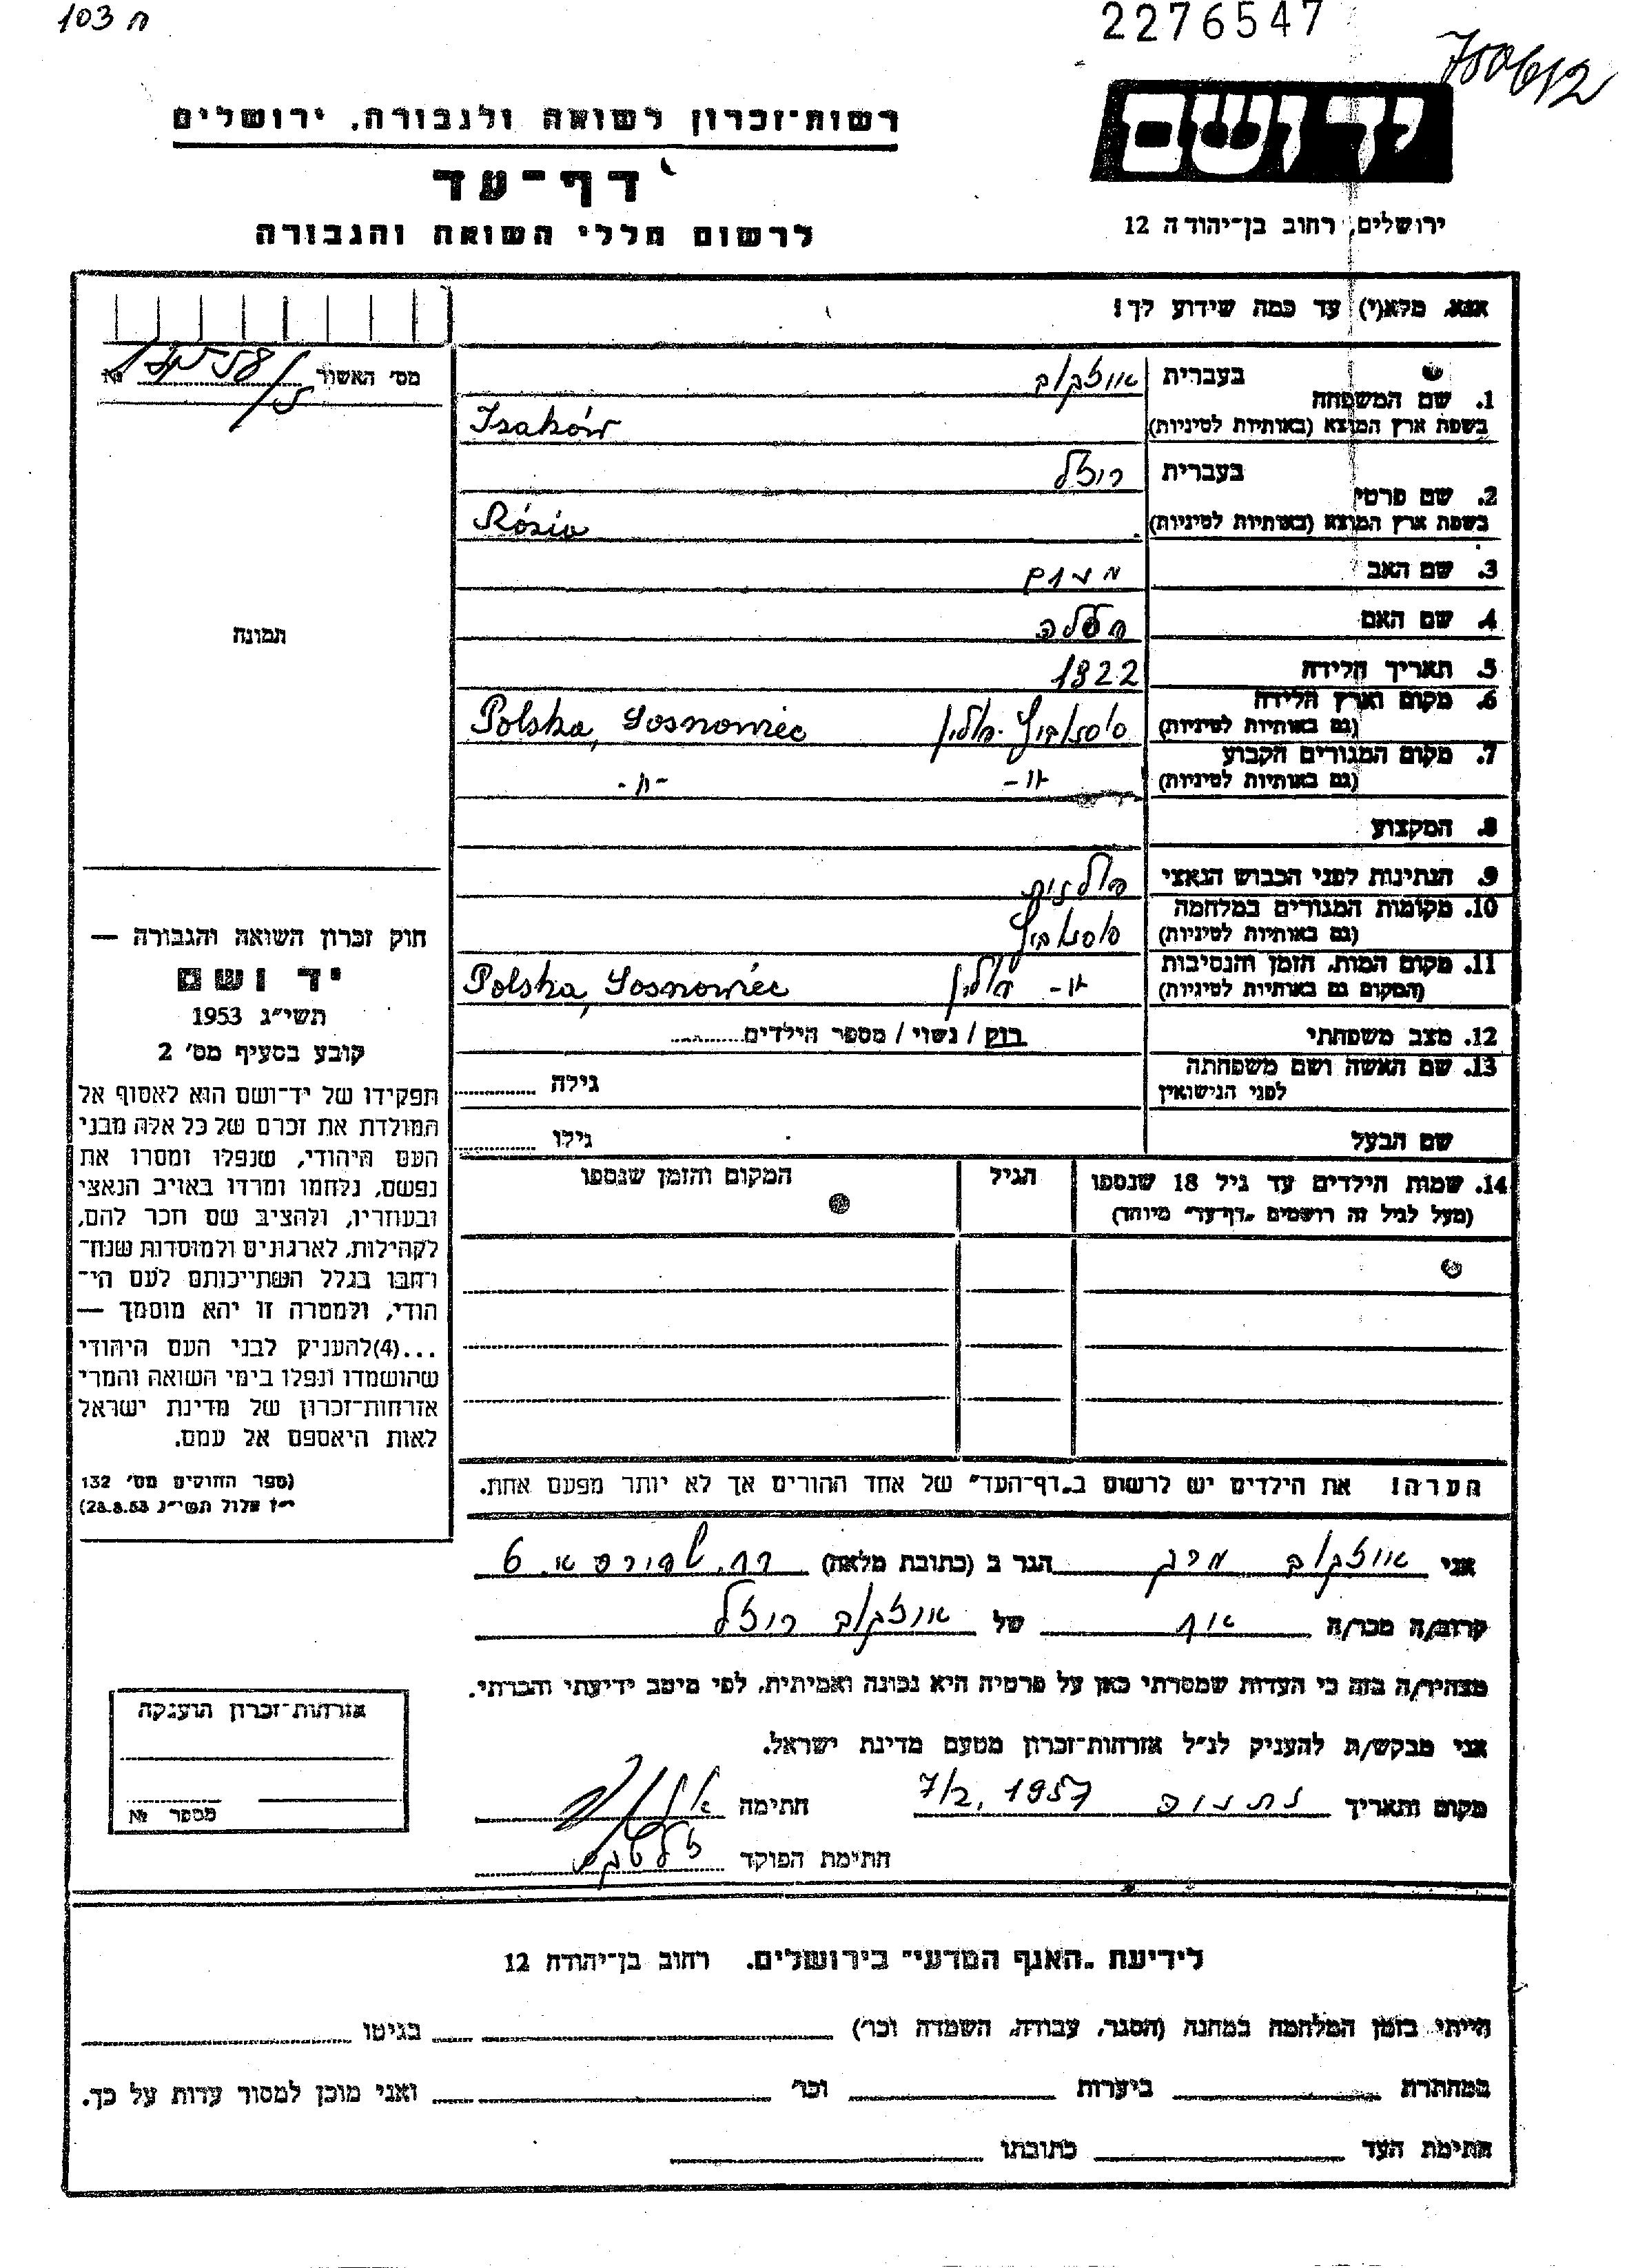 ח 103
2276547
700612
יד ושם
ירושלים, רחוב בן־יהודה 12
רשות־זכרון לשואה ולגבורה, ירושלים
דף־עד
לרשום חללי השואה והגבורה
אנא, מלא(י) עד כמה שידוע לך!
מס' האשור № 
1. שם המשפחה
בעברית אוזקוב
בשפת ארץ המוצא (באותיות לטיניות) Izaków
2. שם פרטי
בעברית רוזל
בשפת ארץ המוצא (באותיות לטיניות) Rózia
3. שם האב
4. שם האם
5. תאריך הלידה 1922
6. מקום וארץ הלידה
(גם באותיות לטיניות) סוסנוביץ פולין Polska, Sosnowiec
7. מקום המגורים הקבוע
(גם באותיות לטיניות) -"- -"-
8. המקצוע
9. הנתינות לפני הכבוש הנאצי פולנית
10. מקומות המגורים במלחמה
(גם באותיות לטיניות) סוסנוביץ
11. מקום המות, הזמן והנסיבות
(המקום גם באותיות לטיניות) -"- פולין Polska, Sosnowiec
12. מצב משפחתי רוק / נשוי / מספר הילדים
13. שם האשה ושם משפחתה
לפני הנישואין
גילה
שם הבעל גילו
14. שמות הילדים עד גיל 18 שנספו
(מעל לגיל זה רושמים "דף־עד" מיוחד)
הגיל
המקום והזמן שנספו
הערה! את הילדים יש לרשום ב"דף־העד" של אחד ההורים אך לא יותר מפעם אחת.
תמונה
חוק זכרון השואה והגבורה —
יד ושם
תשי"ג 1953
קובע בסעיף מס' 2
תפקידו של יד־ושם הוא לאסוף אל
המולדת את זכרם של כל אלה מבני
העם היהודי, שנפלו ומסרו את
נפשם, נלחמו ומרדו באויב הנאצי
ובעוזריו, ולהציב שם וזכר להם,
לקהילות, לארגונים ולמוסדות שנח־
רחבו בגלל השתייכותם לעם הי־
הודי, ולמטרה זו יהא מוסמך —
...(4)להעניק לבני העם היהודי
שהושמדו ונפלו בימי השואה והמרי
אזרחות־זכרון של מדינת ישראל
לאות היאספם אל עמם.
(ספר החוקים מס' 132
י"ז אלול תשי"ג 28.8.53)
אני אוזקוב הגר ב (כתובת מלאה)
קרוב/ה מכר/ה אח של אוזקוב רוזל
מצהיר/ה בזה כי העדות שמסרתי כאן על פרטיה היא נכונה ואמיתית, לפי מיטב ידיעתי והכרתי.
אני מבקש/ת להעניק לנ"ל אזרחות־זכרון מטעם מדינת ישראל.
מקום ותאריך נתניה 7/2, 1957 חתימה
חתימת הפוקד
אזרחות־זכרון הוענקה
מספר №
לידיעת "האגף המדעי" בירושלים, רחוב בן־יהודה 12
הייתי בזמן המלחמה במחנה (הסגר, עבודה, השמדה וכו') בגיטו
במחתרת ביערות וכו' ואני מוכן למסור עדות על כך.
חתימת העד כתובתו